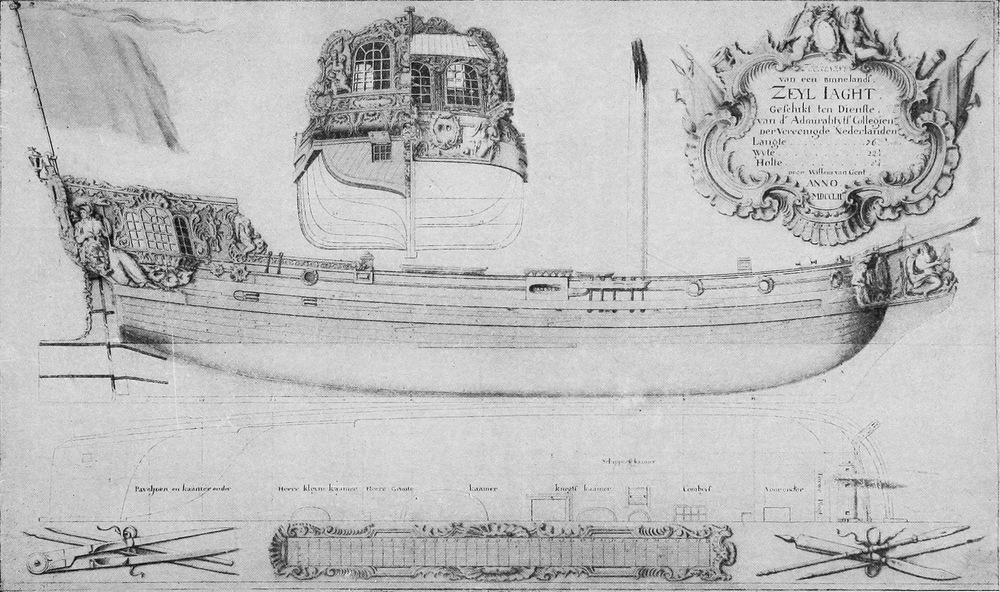 van een binnelands.
ZEYL IAGHT.
Geschikt ten Dienste.
van d' Admiralityts Collegien
der Vereenigde Nederlanden
Langte . . . . . . . . 76
Wyte . . . . . . . . 22
Holte . . . . . . . . 8
door Willem van Gent
ANNO
MDCCLII
Schippers kaamer
Pavaljoen en kaamer onder
Heere kleyne kaamer
Heere Groote
kaamer
knegts kaamer
Combuis
Vooronder